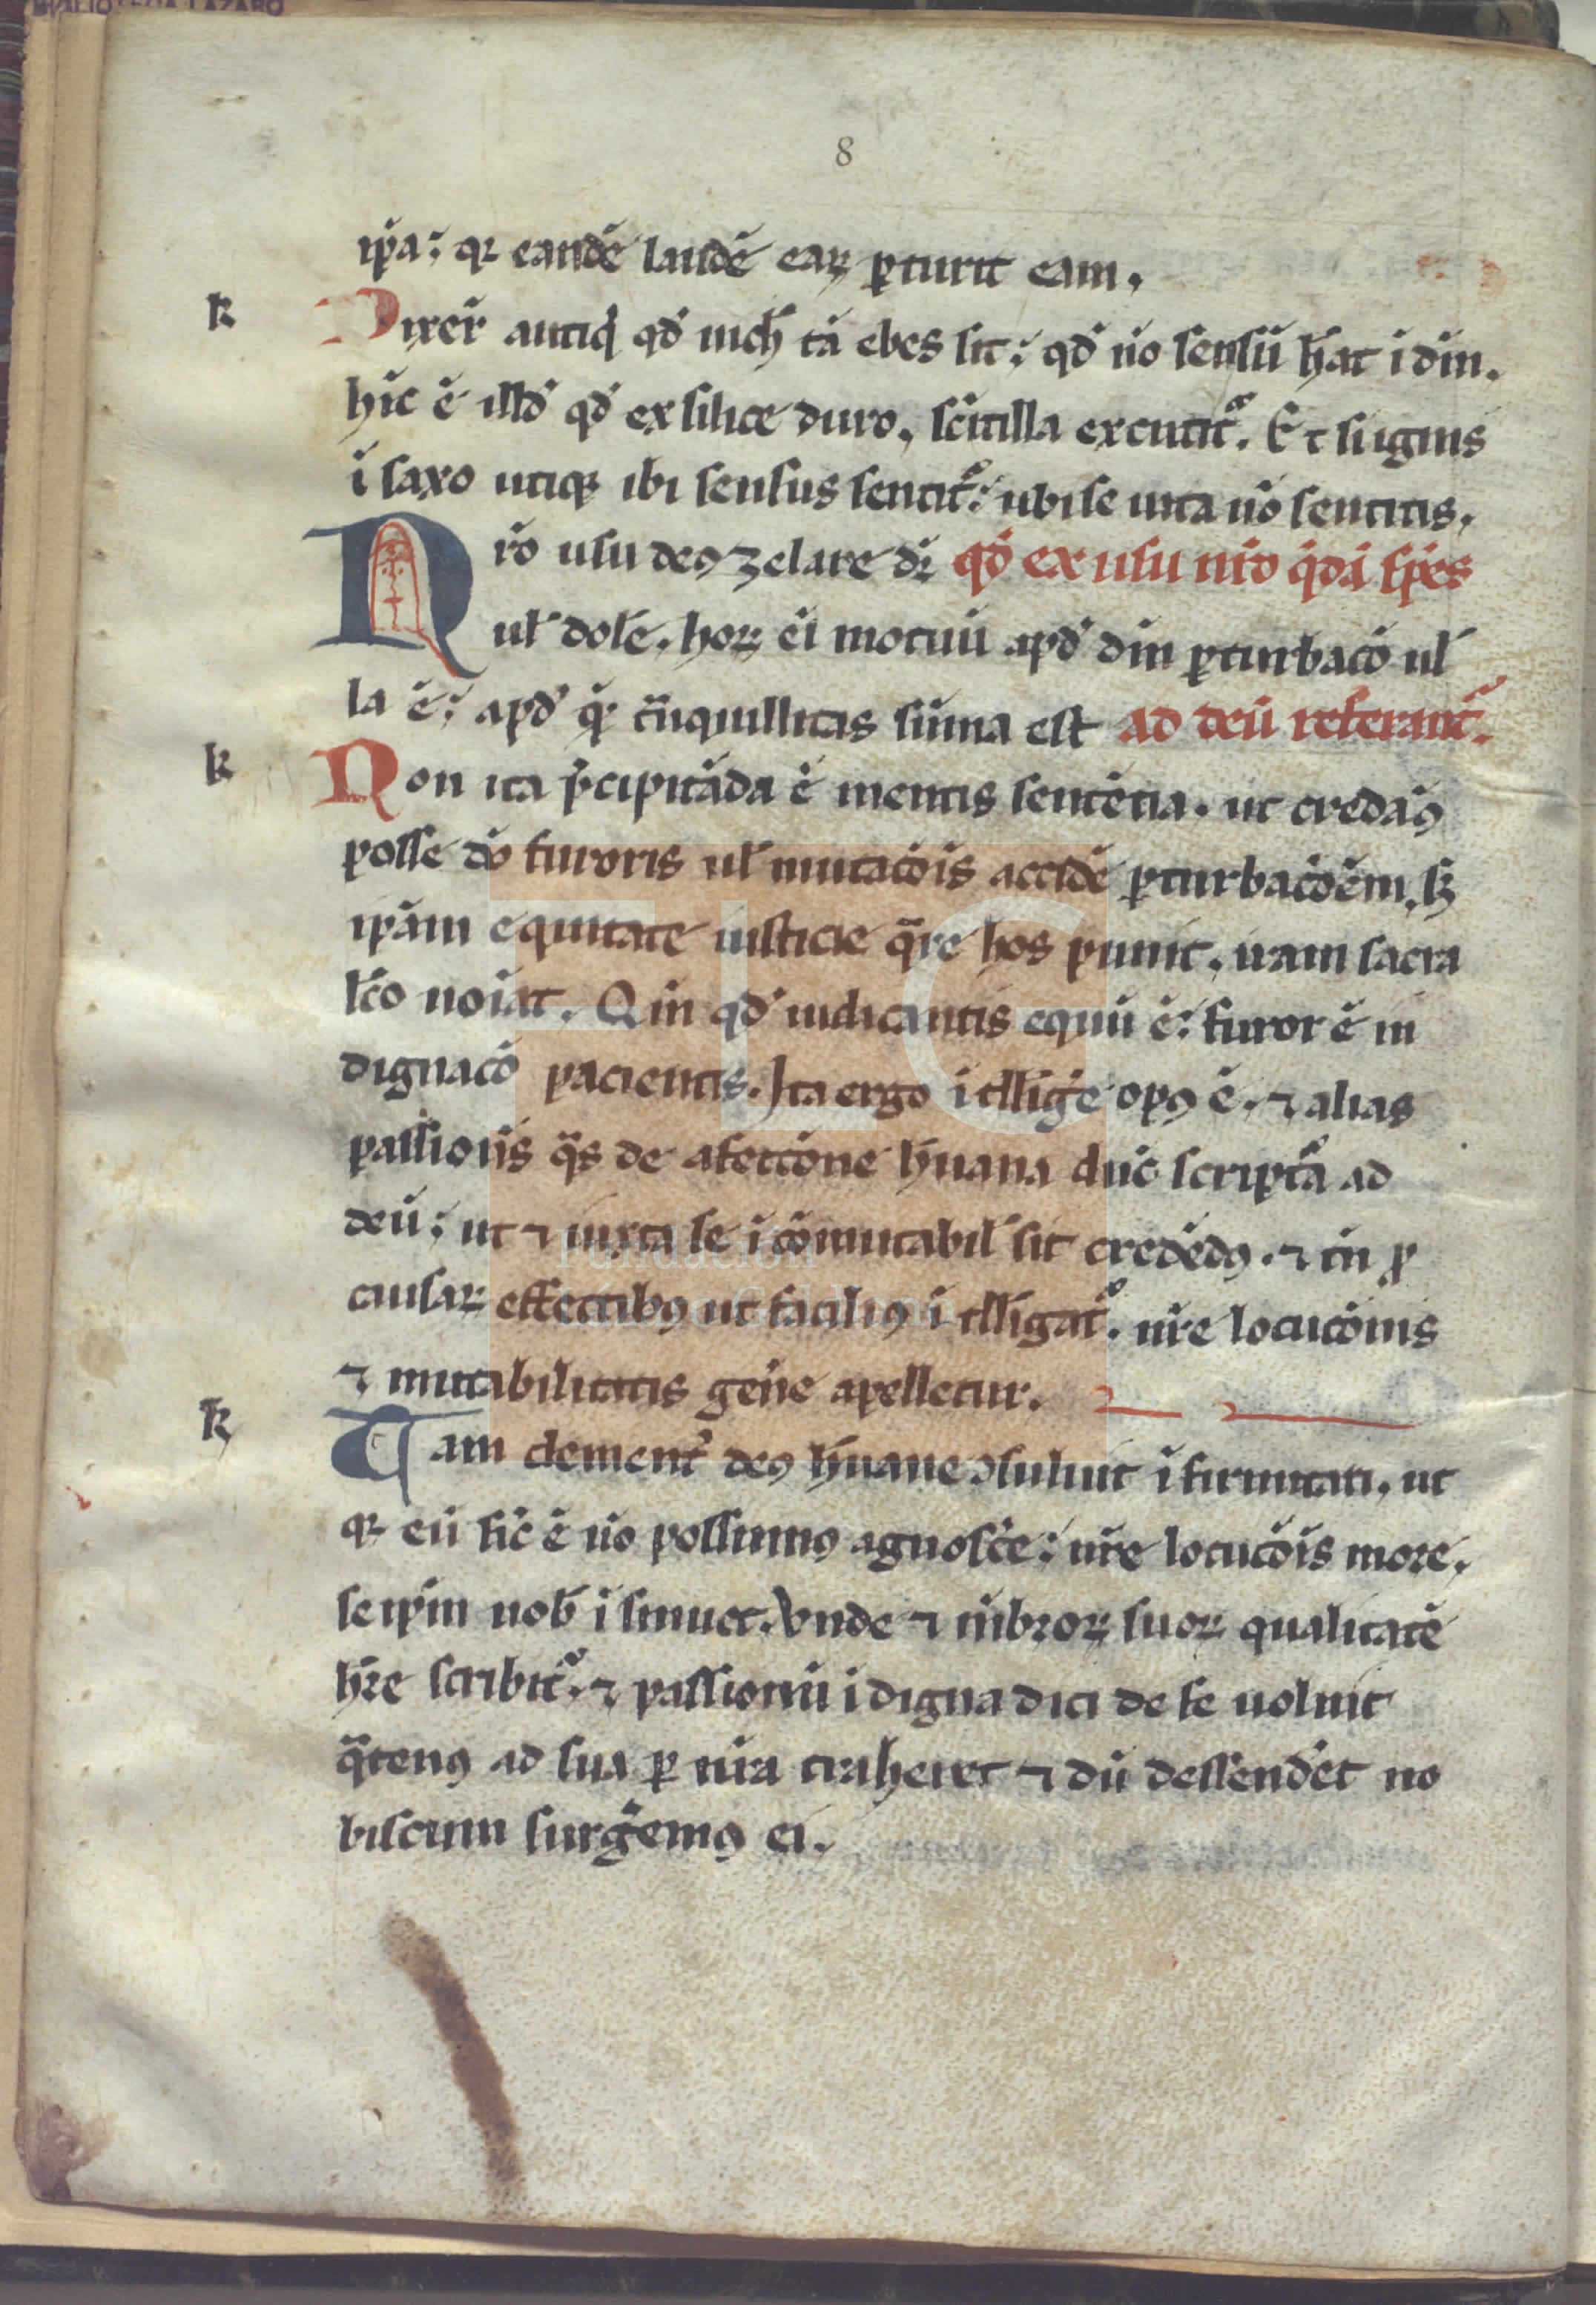 BIBLIOTECA LAZARO
8
ip̄a; qꝛ eandē laudē eaꝝ ꝑturit eam.
k Dixer̄ antiqͥ qđ nich̄ tā ebes sit; qđ n̄o sensū h̄at i dm̄.
hic ē illđ qđ ex silice duro, sc̄itilla excutit᷑. Et si ignis
ī saxo utiqꝫ ibi sensus sentit᷑; ubi se uita n̄o sentitis.
Nr̄o usu deꝰ zelare dr̄ qđ ex usu nr̄o q̄dā sp̄es
ul̄ dolē. hoꝝ ei motuū apđ dm̄ ꝑturbac̄o ul
la ē; apđ q̄ t̄nquillitas sūma est ad deū referant᷑.
k Non ita p̄cipitāda ē mentis sentētia. ut credam̄ꝰ
posse dō furoris ul̄ mutac̄ois accidē ꝑturbac̄oēm, sꝫ
ip̄am equitate iusticie q̄re hos punit, iram sacra
lc̄o noiat. Qm̄ qđ iudicantis equū ē; furor ē in
dignac̄o pacientis. Ita ergo i tlliḡe opꝰ ē. ⁊ alias
passiōis q̄s de afecc̄one h̄uana duc̄ scriptᷓa ad
deū; ut ⁊ iuxta se i cōmutabil̄ sit credēdꝰ. ⁊ tn̄ ꝓ
causaꝝ effectibꝰ ut faciliꝰ i tlligat᷑. nr̄e locuc̄onis
⁊ mutabilitatis geñe apelletur.
k Tam clement᷑ deꝰ h̄uane ꝯsuluit i firmitati. ut
qꝛ eū sic̄ ē n̄o possumꝰ agnosc̄e; nr̄e locuc̄ois more.
se ip̄m nob̄ i sinuet. Vnde ⁊ m̄broꝝ suoꝝ qualitatē
hr̄e scribit᷑. ⁊ passionū i digna dici de se uoluit
q̄tenꝰ ad sua ꝑ nr̄a traheret ⁊ dū dessendēt no
biscum surḡemꝰ ei.
FLG
Fundación